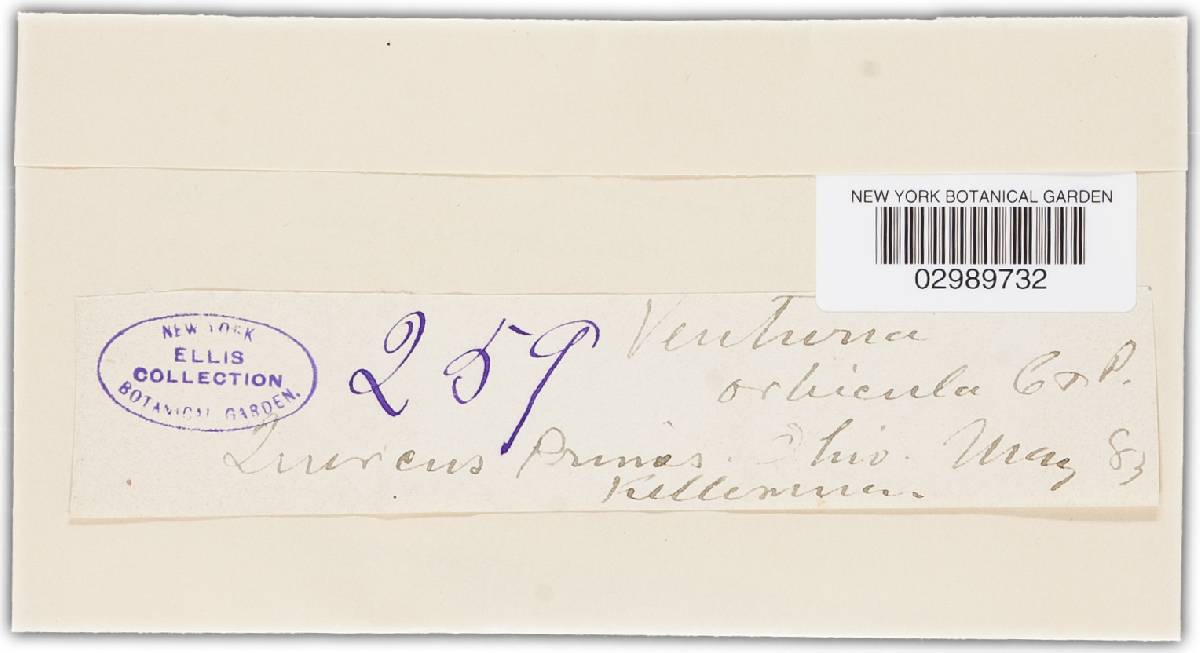 NEW YORK BOTANICAL GARDEN
02989732
NEW YORK
ELLIS
COLLECTION
BOTANICAL GARDEN.
259
Venturia
orbicula C & P.
Quercus Prinos. Ohio. May 83
Kellerman.